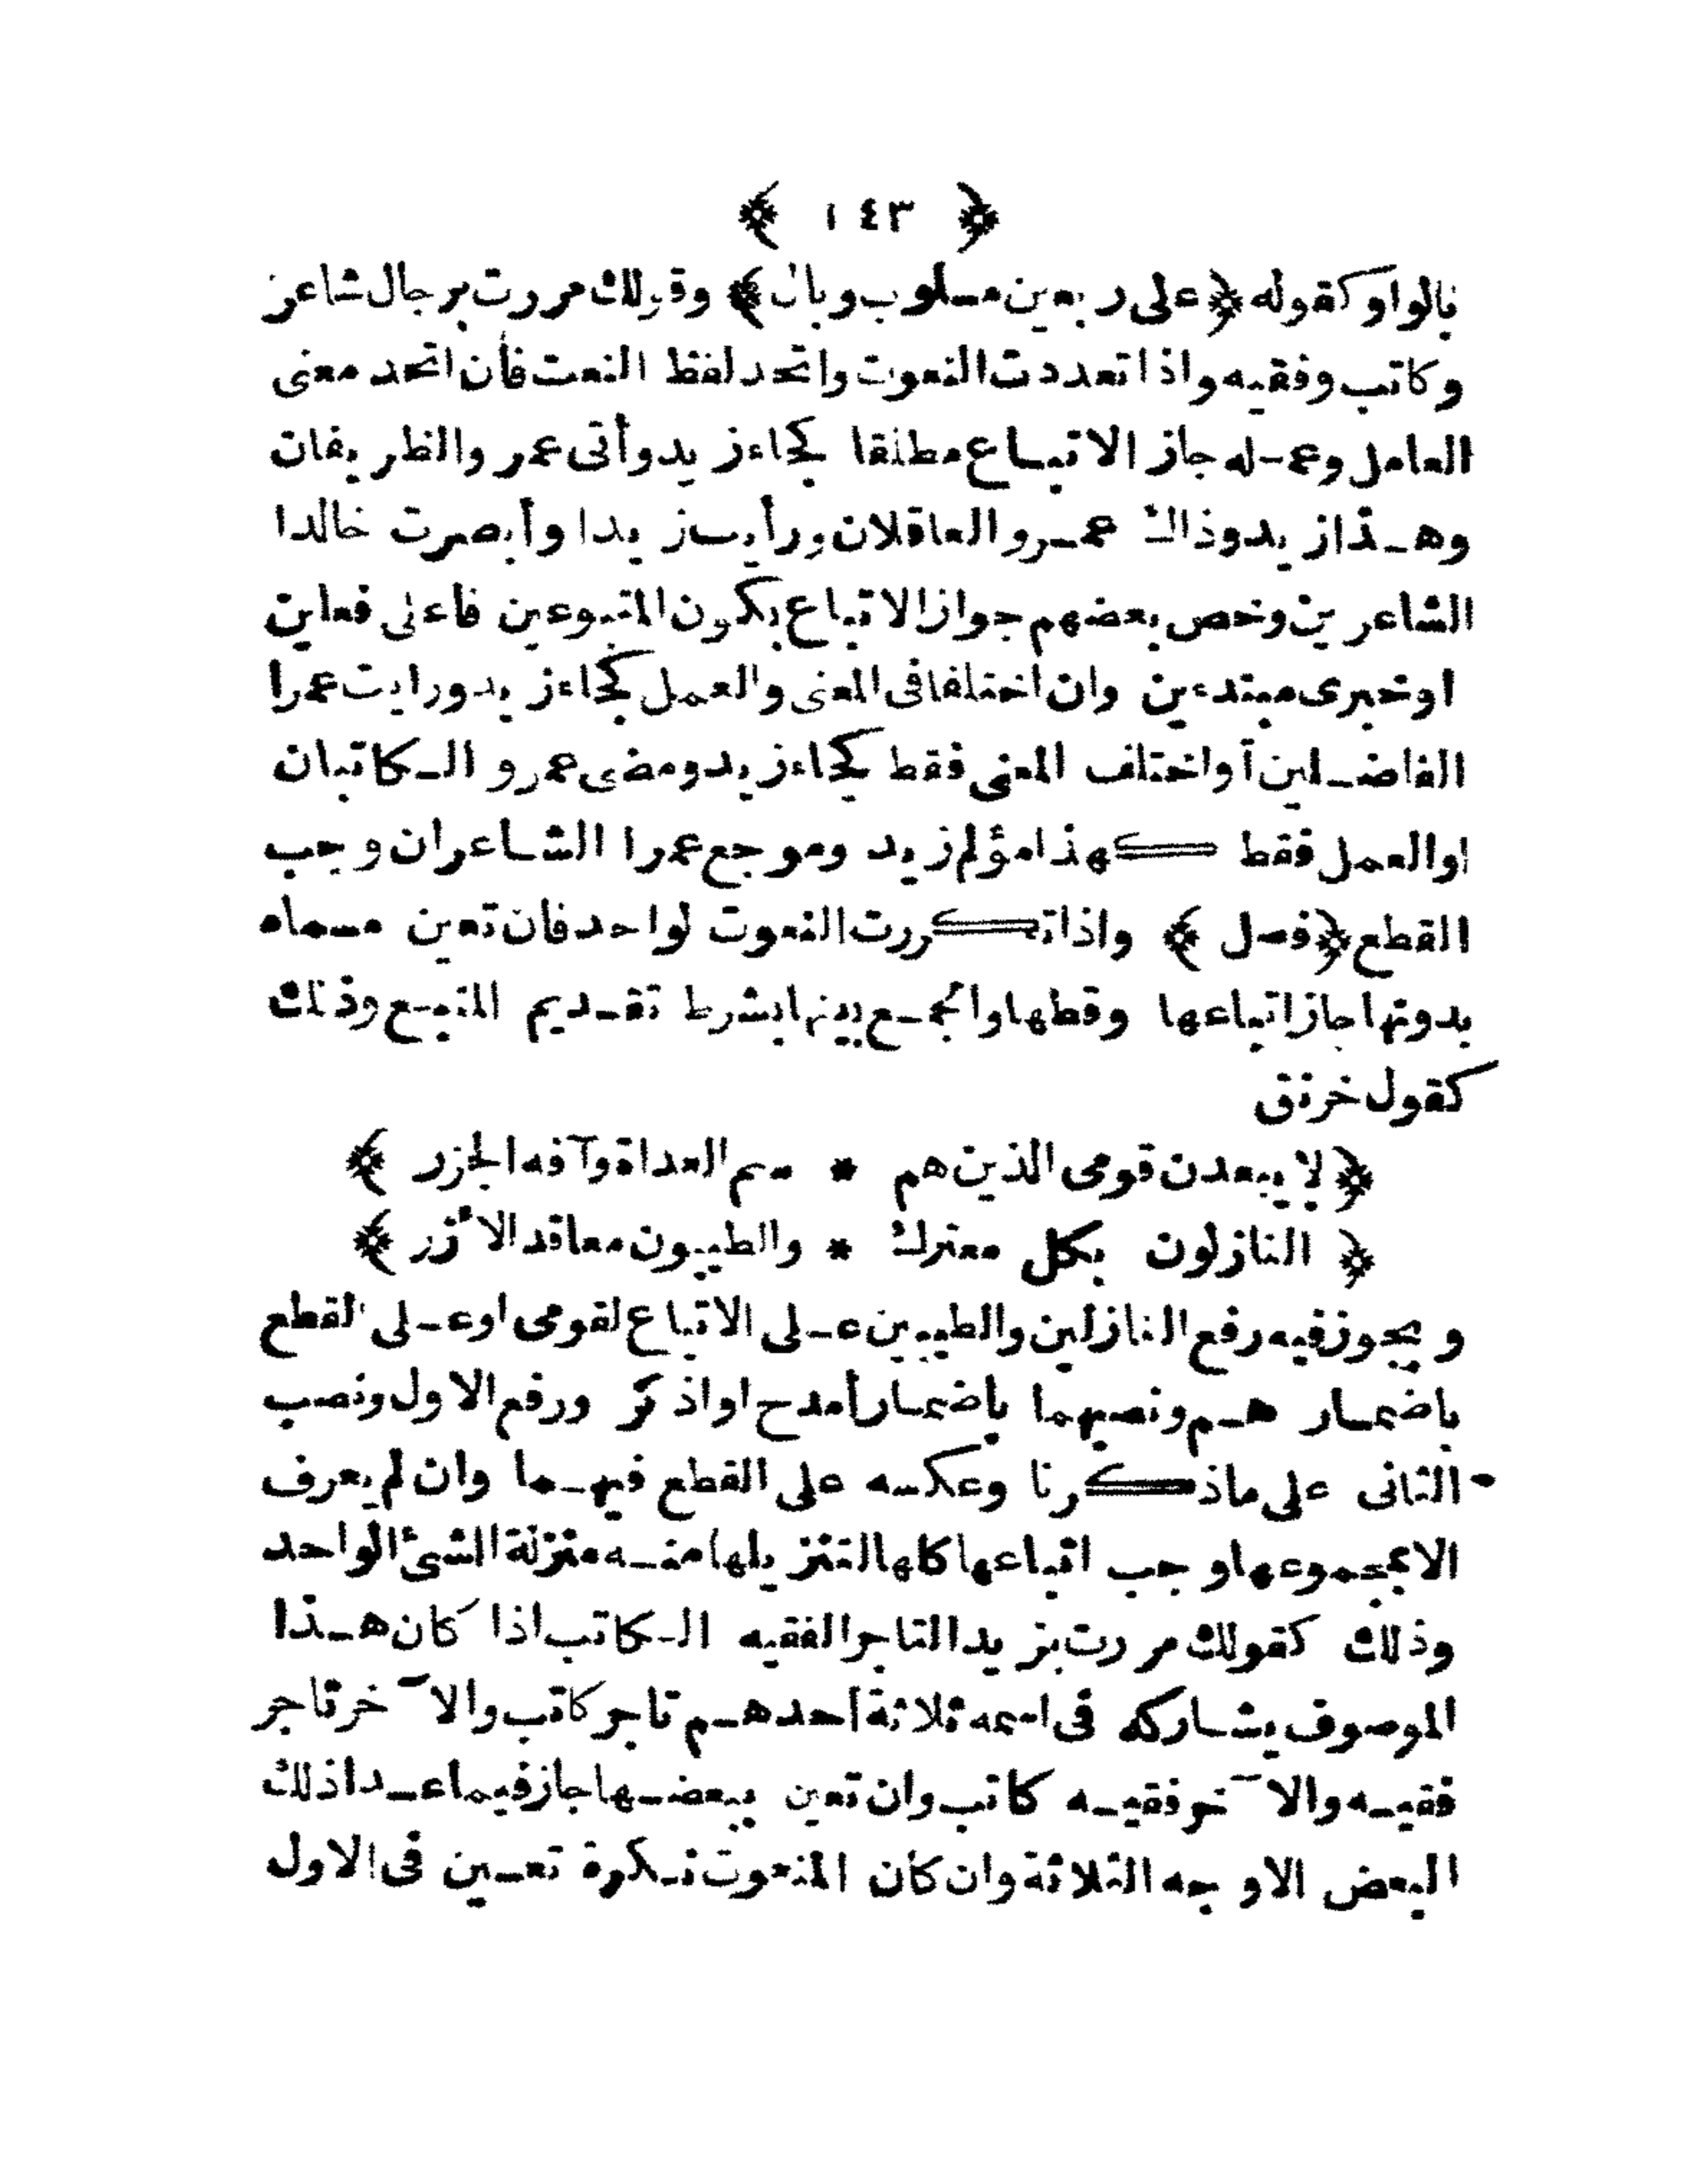 ﴿ ١٤٣ ﴾
بالواو كقوله ﴿على ربعين مسلوب وبال﴾ وقولك مررت برجال شاعر
وكاتب وفقيه واذا تعددت النعوت واتحد لفظ النعت فأن اتحد معنى
العامل وعمله جاز الاتباع مطلقا كجاء زيد وأتى عمر والظريفان
وهذا زيد وذاك عمرو العاقلان ورأيت زيدا وأبصرت خالدا
الشاعرين وخص بعضهم جواز الاتباع بكون المتبوعين فاعلى فعلين
او خبرى مبتدءين وان اختلفا فى المعنى والعمل كجاء زيد ورايت عمرا
الفاضلين أو اختلف المعنى فقط كجاء زيد ومضى عمرو الكاتبان
او العمل فقط كهذا مؤلم زيد وموجع عمرا الشاعران وجب
القطع ﴿فصل﴾ واذا تكررت النعوت لواحد فان تعين مسماه
بدونها جاز اتباعها وقطها والجمع بينها بشرط تقديم المتبع وذلك
كقول خرنق
﴿لا يبعدن قومى الذين هم * سم العداة وآفه الجزر﴾
﴿النازلون بكل معترك * والطيبون معاقد الأزر﴾
ويجوز فيه رفع النازلين والطيبين على الاتباع لقومى او على القطع
باضمار هم ونصبهما باضمار أمدح او اذكر ورفع الاول ونصب
الثانى على ماذكرنا وعكسه على القطع فيهما وان لم يعرف
الا بمجموعها وجب اتباعها كلها لتنزيلها منه منزلة الشئ الواحد
وذلك كقولك مررت بزيد التاجر الفقيه الكاتب اذا كان هذا
الموصوف يشاركه فى اسمه ثلاثة احدهم تاجر كاتب والآخر تاجر
فقيه والآخر فقيه كاتب وان تعين ببعضها جاز فيما عدا ذلك
البعض الاوجه الثلاثة وان كان المنعوت نكرة تعين فى الاول